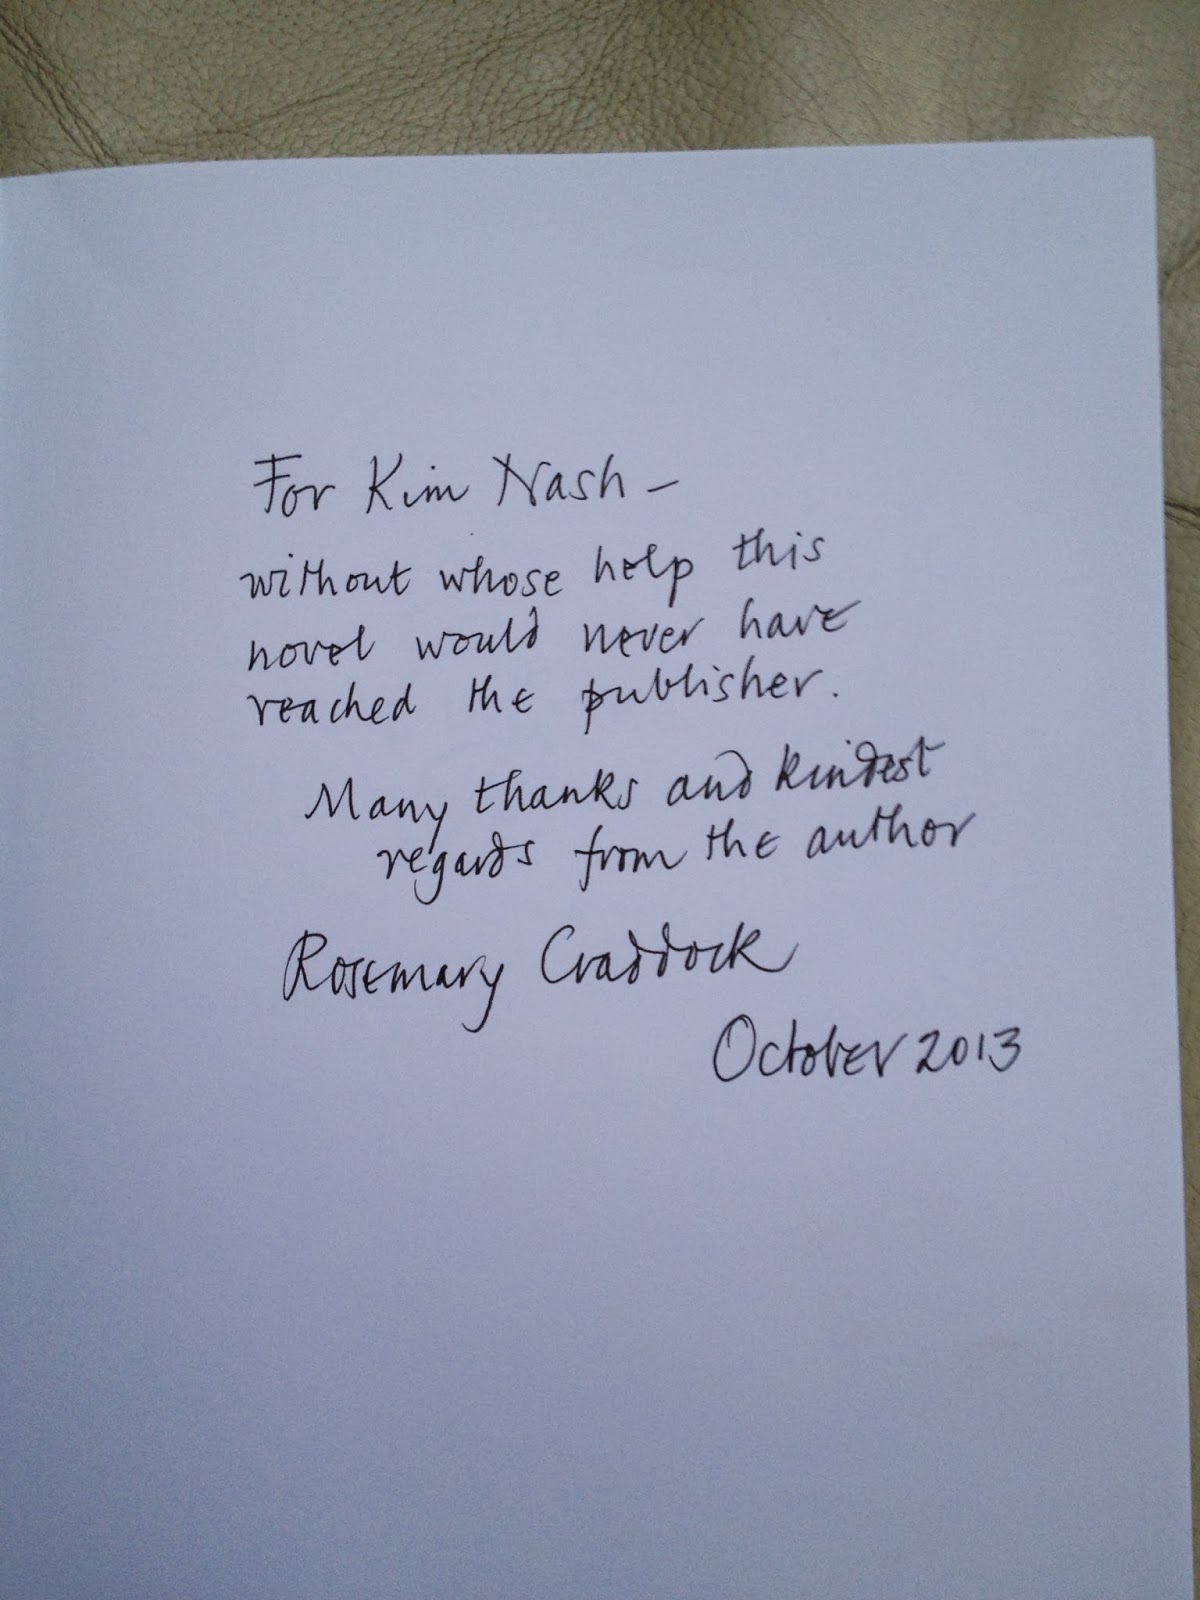 For Kim Nash –
without whose help this
novel would never have
reached the publisher.
Many thanks and kindest
regards from the author
Rosemary Craddock
October 2013